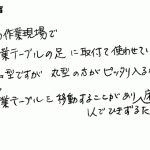 の作業現場で
業テーブルの足に取付て使わせてい
型ですが 丸型の方がピッタリ入る
業テーブルを移動することがあり
1人でひきずるた